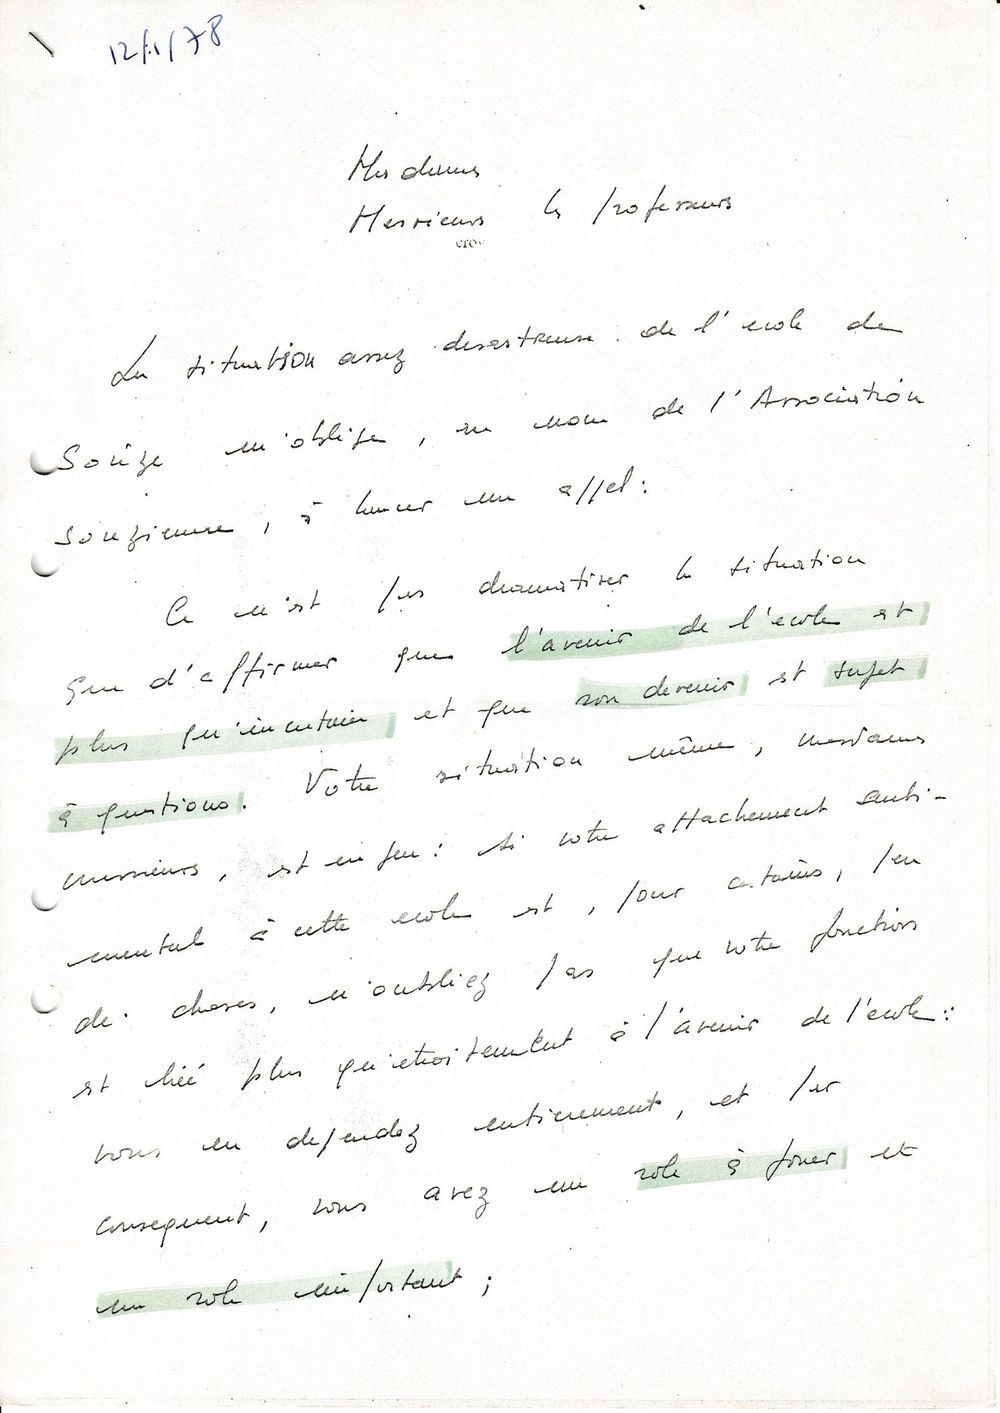 12/1/78
Mesdames
Messieurs les professeurs
La situation assez desastreuse de l'ecole de
Sorèze m'oblige, au nom de l'Association
Sorezienne, à lancer un appel:
Ce n'est pas dramatiser la situation
que d'affirmer que l'avenir de l'ecole est
plus qu'incertain et que son devenir est sujet
à questions. Votre situation même, mesdames
messieurs, est en jeu: si votre attachement senti-
mental à cette ecole est, pour certains, peu
de choses, n'oubliez pas que votre fonction
est liée plus qu'etroitement à l'avenir de l'ecole:
vous en dependez entierement, et par
consequent, vous avez un role à jouer et
un role important;